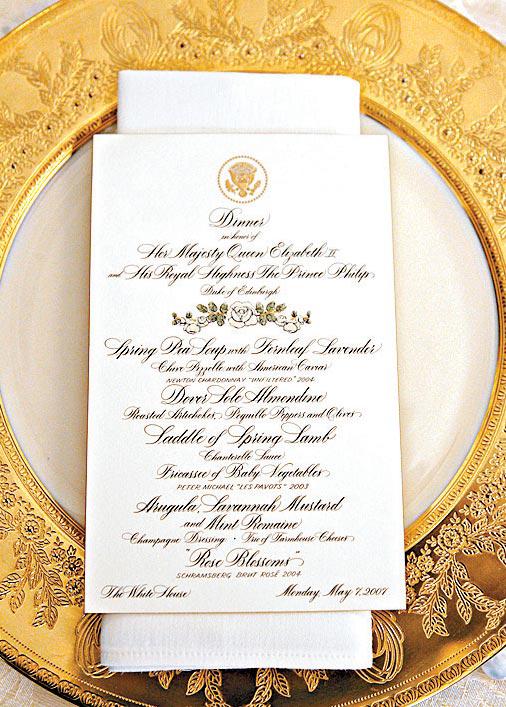 Dinner
in honor of
Her Majesty Queen Elizabeth II
and His Royal Highness The Prince Philip
Duke of Edinburgh
Spring Pea Soup with Fernleaf Lavender
Chive Pizzelle with American Caviar
NEWTON CHARDONNAY "UNFILTERED" 2004
Dover Sole Almondine
Roasted Artichokes, Pequillo Peppers and Olives
Saddle of Spring Lamb
Chanterelle Sauce
Fricassee of Baby Vegetables
PETER MICHAEL "LES PAVOTS" 2003
Arugula, Savannah Mustard
and Mint Romaine
Champagne Dressing · Trio of Farmhouse Cheeses
"Rose Blossoms"
SCHRAMSBERG BRUT ROSÉ 2004
The White House Monday May 7, 2007